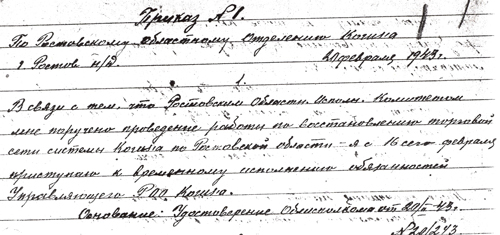 Приказ №1.
По Ростовскому областному Отделению Когиза
г Ростов н/Д. 20 февраля 1943г.
1.
В связи с тем, что Ростовским Области. Исполн. Комитетом
мне поручено проведение работы по восстановлению торговой
сети системы Когиза по Ростовской области - я с 16 сего февраля
приступаю к временному исполнению обязанностей
Управляющего РОО Когиза.
Основание: Удостоверение Облисполкома от 20/II 43.
№20/243